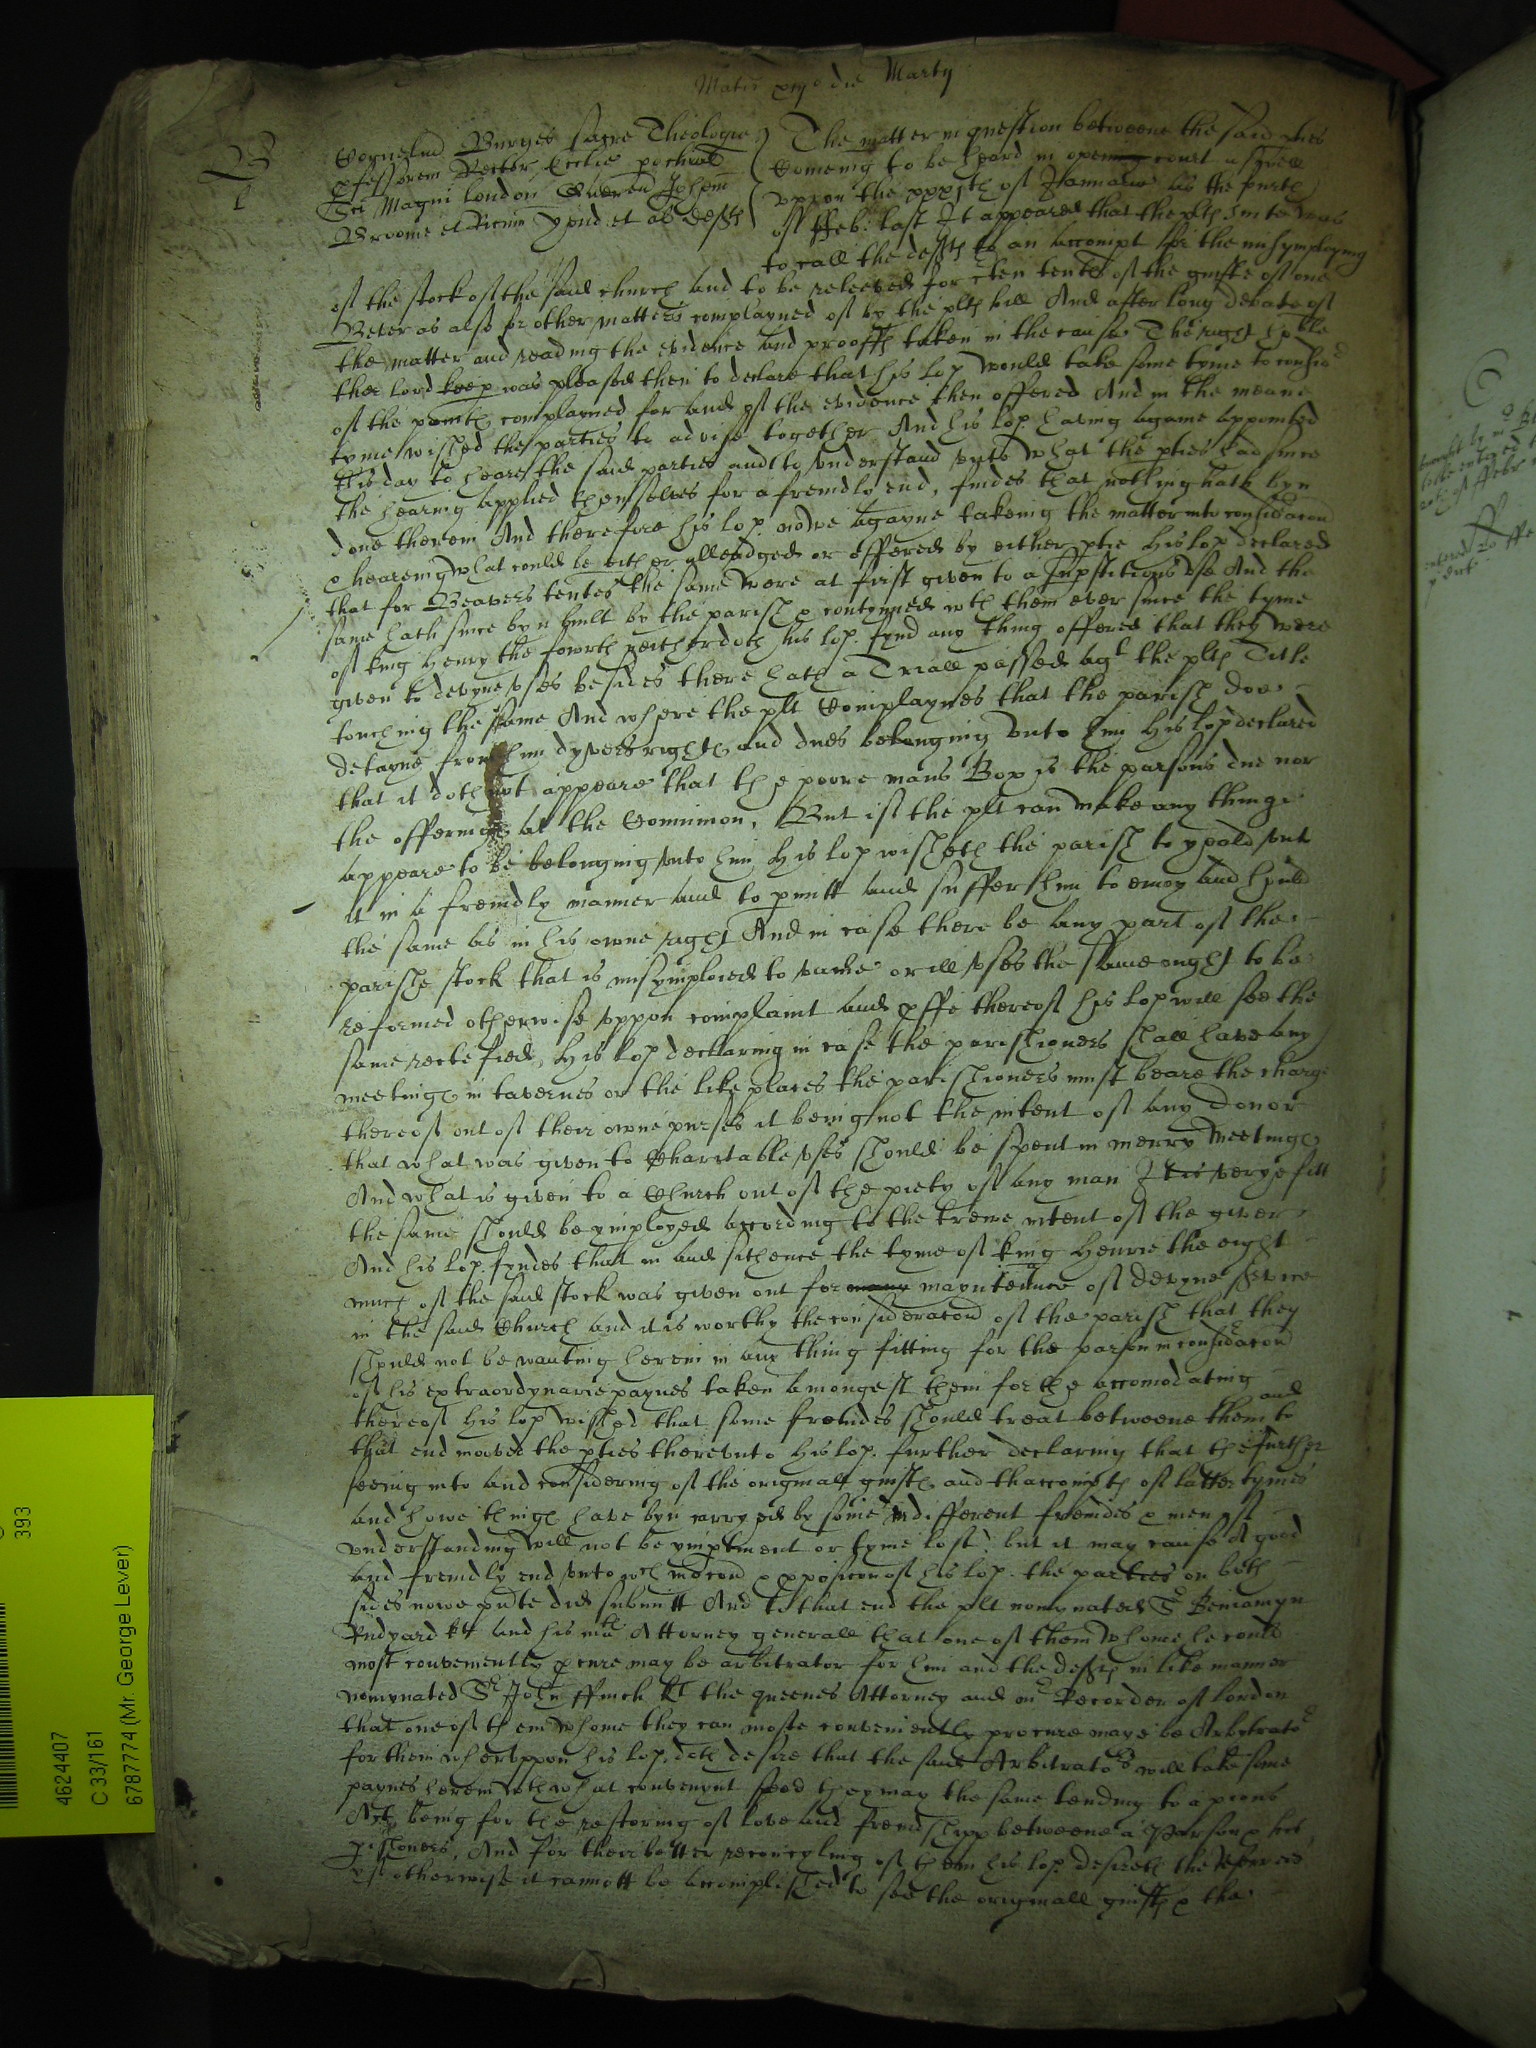 Martis xiijo die Martij
B
l
Corneliu Burges sacre Theologie
pfessorem Rector Ecclie pochial
Sci Magni London Quereñ Johem
Broome et Ricum Pond et al defts
The matter in question betweene the said pties
Comeing to be heard in open court aswell
uppon the xxxjth of Januarie as the fourth
of ffeb: last It appeared that the plts suite was
to call the defts to an accompt for the misymploying
of the stock of the said church and to be releeved for cten tents of the guifte of one
Bever as also for other matters complayned of by the plts bill And after long debate of
the matter and reading the evidence and prooffs taken in the cause The right hoble
the lord keep was pleased then to declare that his lop would take some tyme to consid
of the points complayned for and of the evidence then offered And in the meane
tyme wished the parties to advise together And his lop haveing againe appointed
this day to heare the said parties and to understand unto what the pties had since
the hearing applied themselves for a freindly end, findes that nothing hath byn
done therein And therefore his lop. nowe agayne takeing the matter into considacon
& heareing what could be either alleadged or offered by either ptie His lop declared
that for Beavers tentes the same were at first given to a supstitious use And the
same hath since byn built by the parish & contynued wth them ever since the tyme
of king Henry the fowrth neither doth his lop. fynd any thing offered that they were
given to devyne uses besides there hath a Triall passed agt the plts Title
touching the same And where the plt Complaynes that the parish doe
detayne from him dyvers rights and dues belonging unto him His lop declared
that it doth not appeare that the poore mans Box is the parsons due nor
the offerings at the Comunion, But if the plt can make any thinge
appeare to be belonging unto him His lop wisheth the parish to yeald unto
it in a freindly manner and to pmitt and suffer him to enioy and hould
the same as in his owne right And in case there be any part of the
parishe stock that is misymploied to vaine or ill uses the same ought to be
reformed otherwise uppon complaint and pffe thereof his lop will see the
same rectefied, His lop declaring in case the parishioners shall have any
meetings in tavernes or the like places the parishioners must beare the charge
thereof out of their owne purses it being not the intent of any donor
that what was given to Charitable uses should be spent in merry Meetings
And what is given to a Church out of the piety of any man It is verye fitt
the same should be ymployed according to the trewe intent of the giver
And his lop. fyndes that in and sithence the tyme of king Henrie the eight
much of the said stock was given out for many mayntenance of devyne service
in the said Church and it is worthy the consideracon of the parish that they
should not be wanting herein in any thing fitting for the parson in considacon
of his extraordynarie paynes taken amongest them for the accomodating
thereof His lop wished that some freindes should treat betweene them and to
that end moved the pties thereunto His lop. further declaring that the further
seeing into and considering of the originall guifts and thaccompts of latter tymes
and howe things have byn carryed by some indifferent freindes & men of
understanding will not be ymptinent or tyme lost, but it may cause a good
and freindly end unto wch mocon & pposicon of his lop. the parties on both
sides nowe pnte did submitt And to that end the plt nomynated Sr Beniamyn
Rudyard kt and his mats Attorney generall that one of them whome he could
most conveniently pcure may be arbitrator for him and the defts in like manner
nomynated Sr John ffinch kt the queenes Attorney and mr Recorder of London
that one of them whome they can moste conveniently procure maye be Arbytrator
for them wheruppon his lop. doth desire that the said Arbitrators will take some
paynes herein wth what convenynt speed they may the same tending to a pious
Act being for the restoring of love and freindshipp betweene a Parson & his
pishioners, And for their better reconcyling of them his lop. desireth the Referrees
yf otherwise it cannott be accomplished to see the originall guifts & the
393
4624407
C 33/161
6787774 (Mr. George Lever)